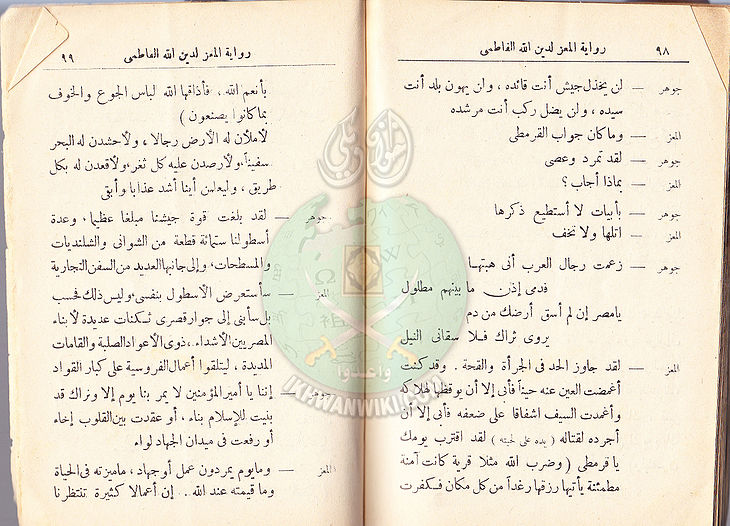 ٩٨
رواية المعز لدين الله الفاطمى
جوهر — لن يخذل جيش أنت قائده ، ولن يهون بلد أنت
سيده ، ولن يضل ركب أنت مرشده
المعز — وما كان جواب القرمطى
جوهر — لقد تمرد وعصى
المعز — بماذا أجاب ؟
جوهر — بأبيات لا أستطيع ذكرها
المعز — اتلها ولا تخف
جوهر — زعمت رجال العرب أنى هبتهـا
فدمى إذن ما بينهم مطلول
يامصر إن لم أسق أرضك من دم
يروى ثراك فـلا سقانى النيل
المعز — لقد جاوز الحد فى الجرأة والقحة . وقد كنت
أغمضت العين عنه حيناً فأبى إلا أن يوقظها لهلاكه
وأغمدت السيف اشفاقا على ضعفه فأبى إلا أن
أجرده لقتاله ( يده على لحيته ) لقد اقترب يومك
يا قرمطى ( وضرب الله مثلا قرية كانت آمنة
مطمئنة يأتيها رزقها رغداً من كل مكان فكفرت
رواية المعز لدين الله الفاطمى
٩٩
بأنعم الله ، فأذاقها الله لباس الجوع والخوف
بما كانوا يصنعون )
لأملأن له الأرض رجالا ، ولأحشدن له البحر
سفينا ، ولأرصدن عليه كل ثغر ، ولأقعدن له بكل
طريق ، وليعلمن أينا أشد عذابا وأبقى
جوهر — لقد بلغت قوة جيشنا مبلغا عظيما ، وعدة
أسطولنا ستمائة قطعة من الشوانى والشلنديات
والمسطحات ، وإلى جانبها العديد من السفن التجارية
المعز — سأستعرض الأسطول بنفسى ، وليس ذلك فحسب
بل سأبنى إلى جوار قصرى ثـكنات عديدة لأبناء
المصريين الأشداء ، ذوى الأعواد الصلبة والقامات
المديدة ، ليتلقوا أعمال الفروسية على كبار القواد
جوهر — إننا يا أمير المؤمنين لا يمر بنا يوم إلا ونراك قد
بنيت للإسلام بناء ، أو عقدت بين القلوب إخاء
أو رفعت فى ميدان الجهاد لواء
المعز — وما يوم يمر دون عمل أو جهاد ، ما ميزته فى الحياة
وما قيمته عند الله .. إن أعمالا كثيرة تنتظرنا
واعدوا
IKHWANWIKI.COM